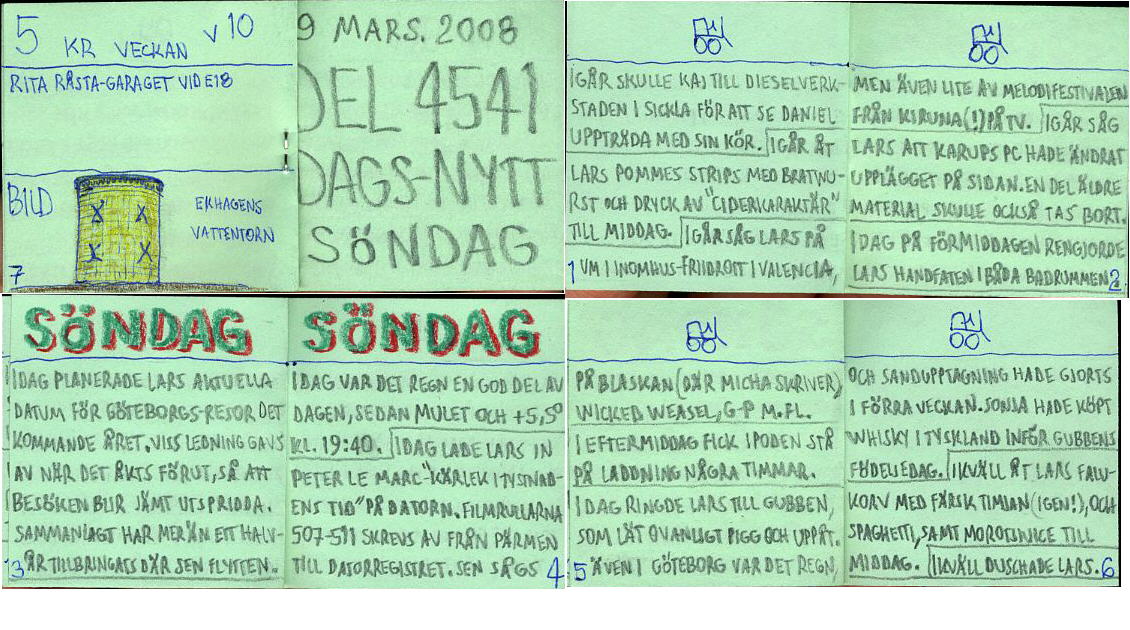 5 KR VECKAN V 10
RITA RÅSTA-GARAGET VID E18
BILD
EKHAGENS
VATTENTORN
7
9 MARS. 2008
DEL 4541
DAGS-NYTT
SÖNDAG
IGÅR SKULLE KAJ TILL DIESELVERK-
STADEN I SICKLA FÖR ATT SE DANIEL
UPPTRÄDA MED SIN KÖR. IGÅR ÅT
LARS POMMES STRIPS MED BRATWU-
RST OCH DRYCK AV "CIDERKARAKTÄR"
TILL MIDDAG. IGÅR SÅG LARS PÅ
1 VM I INOMHUS-FRIIDROTT I VALENCIA,
MEN ÄVEN LITE AV MELODIFESTIVALEN
FRÅN KIRUNA(!) PÅ TV. IGÅR SÅG
LARS ATT KARUPS PC HADE ÄNDRAT
UPPLÄGGET PÅ SIDAN. EN DEL ÄLDRE
MATERIAL SKULLE OCKSÅ TAS BORT.
IDAG PÅ FÖRMIDDAGEN RENGJORDE
LARS HANDFATEN I BÅDA BADRUMMEN. 2
SÖNDAG
IDAG PLANERADE LARS AKTUELLA
DATUM FÖR GÖTEBORGS-RESOR DET
KOMMANDE ÅRET. VISS LEDNING GAVS
AV NÄR DET ÅKTS FÖRUT, SÅ ATT
BESÖKEN BLIR JÄMT UTSPRIDDA.
SAMMANLAGT HAR MER ÄN ETT HALV-
3 ÅR TILLBRINGATS DÄR SEN FLYTTEN.
SÖNDAG
IDAG VAR DET REGN EN GOD DEL AV
DAGEN, SEDAN MULET OCH +5,5°
KL. 19:40. IDAG LADE LARS IN
PETER LE MARC "KÄRLEK I TYSTNAD-
ENS TID" PÅ DATORN. FILMRULLARNA
507-511 SKREVS AV FRÅN PÄRMEN
TILL DATORREGISTRET. SEN SÅGS 4
PÅ BLASKAN (DÄR MICHA SKRIVER),
WICKED WEASEL, G-P M.FL.
I EFTERMIDDAG FICK IPODEN STÅ
PÅ LADDNING NÅGRA TIMMAR.
IDAG RINGDE LARS TILL GUBBEN,
SOM LÄT OVANLIGT PIGG OCH UPPÅT.
5 ÄVEN I GÖTEBORG VAR DET REGN,
OCH SANDUPPTAGNING HADE GJORTS
I FÖRRA VECKAN. SONJA HADE KÖPT
WHISKY I TYSKLAND INFÖR GUBBENS
FÖDELEDAG. IKVÄLL ÅT LARS FALU-
KORV MED FÄRSK TIMJAN (IGEN!), OCH
SPAGHETTI, SAMT MOROTSJUICE TILL
MIDDAG. IKVÄLL DUSCHADE LARS. 6